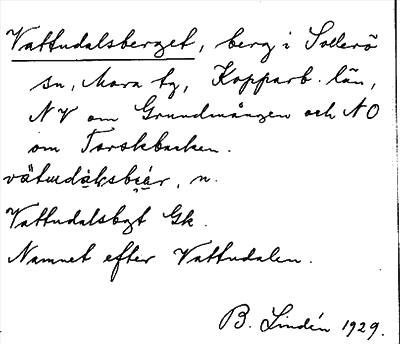 Vattudalsberget, berg i Sollerö
sn, Mora tg, Kopparb. län,
NV om Grundmången och NO
om Torskbacken.
vätudáḷsbẹ̀ár, n.
Vattudalsbgt Gk.
Namnet efter Vattudalen.
B. Lindén 1929.